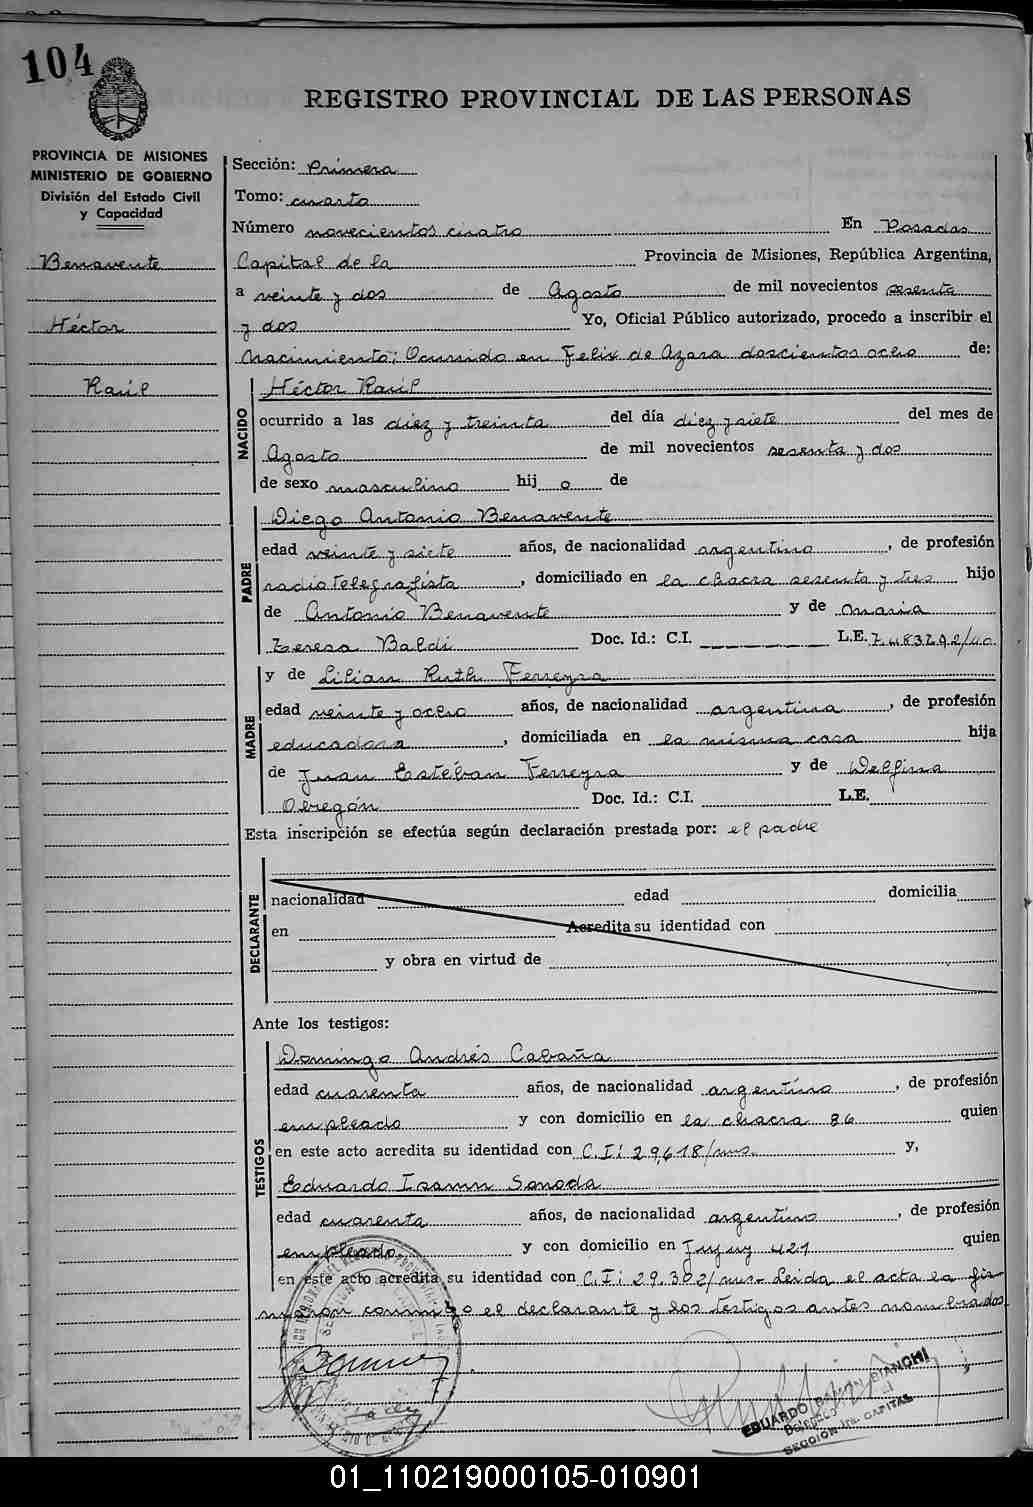 104
REGISTRO PROVINCIAL DE LAS PERSONAS
PROVINCIA DE MISIONES
MINISTERIO DE GOBIERNO
División del Estado Civil
y Capacidad
Benavente
Héctor
Raúl
Sección: Primera
Tomo: cuarto
Número novecientos cuatro En Posadas
Capital de la Provincia de Misiones, República Argentina,
a veinte y dos de Agosto de mil novecientos sesenta
y dos Yo, Oficial Público autorizado, procedo a inscribir el
Nacimiento; Ocurrido en Felix de Azara doscientos ocho de:
NACIDO
Héctor Raúl
ocurrido a las diez y treinta del día diez y siete del mes de
Agosto de mil novecientos sesenta y dos
de sexo masculino hij o de
PADRE
Diego Antonio Benavente
edad veinte y siete años, de nacionalidad argentino, de profesión
radiotelegrafista, domiciliado en la chacra sesenta y tres hijo
de Antonio Benavente y de Maria
Teresa Baldi Doc. Id.: C.I. L.E.
MADRE
y de Lilian Ruth Ferreyra
edad veinte y ocho años, de nacionalidad argentina, de profesión
educadora, domiciliada en la misma casa hija
de Juan Estéban Ferreyra y de Delfina
Obregón Doc. Id.: C.I. L.E.
Esta inscripción se efectúa según declaración prestada por: el padre
DECLARANTE
nacionalidad edad domicilia
en Acredita su identidad con
y obra en virtud de
Ante los testigos:
TESTIGOS
Domingo Andrés Cabaña
edad cuarenta años, de nacionalidad argentino, de profesión
empleado y con domicilio en la chacra 86 quien
en este acto acredita su identidad con C.I: 29.618/mns. y,
Eduardo Isamu Sonoda
edad cuarenta años, de nacionalidad argentino, de profesión
empleado y con domicilio en Jujuy 421 quien
en este acto acredita su identidad con C.I: 29.302/mns- Leida el acta la fir-
maron conmigo el declarante y los testigos antes nombrados
EDUARDO RAMON BIANCHI
Delegado
SECCION 1ra. CAPITAL
01_110219000105-010901